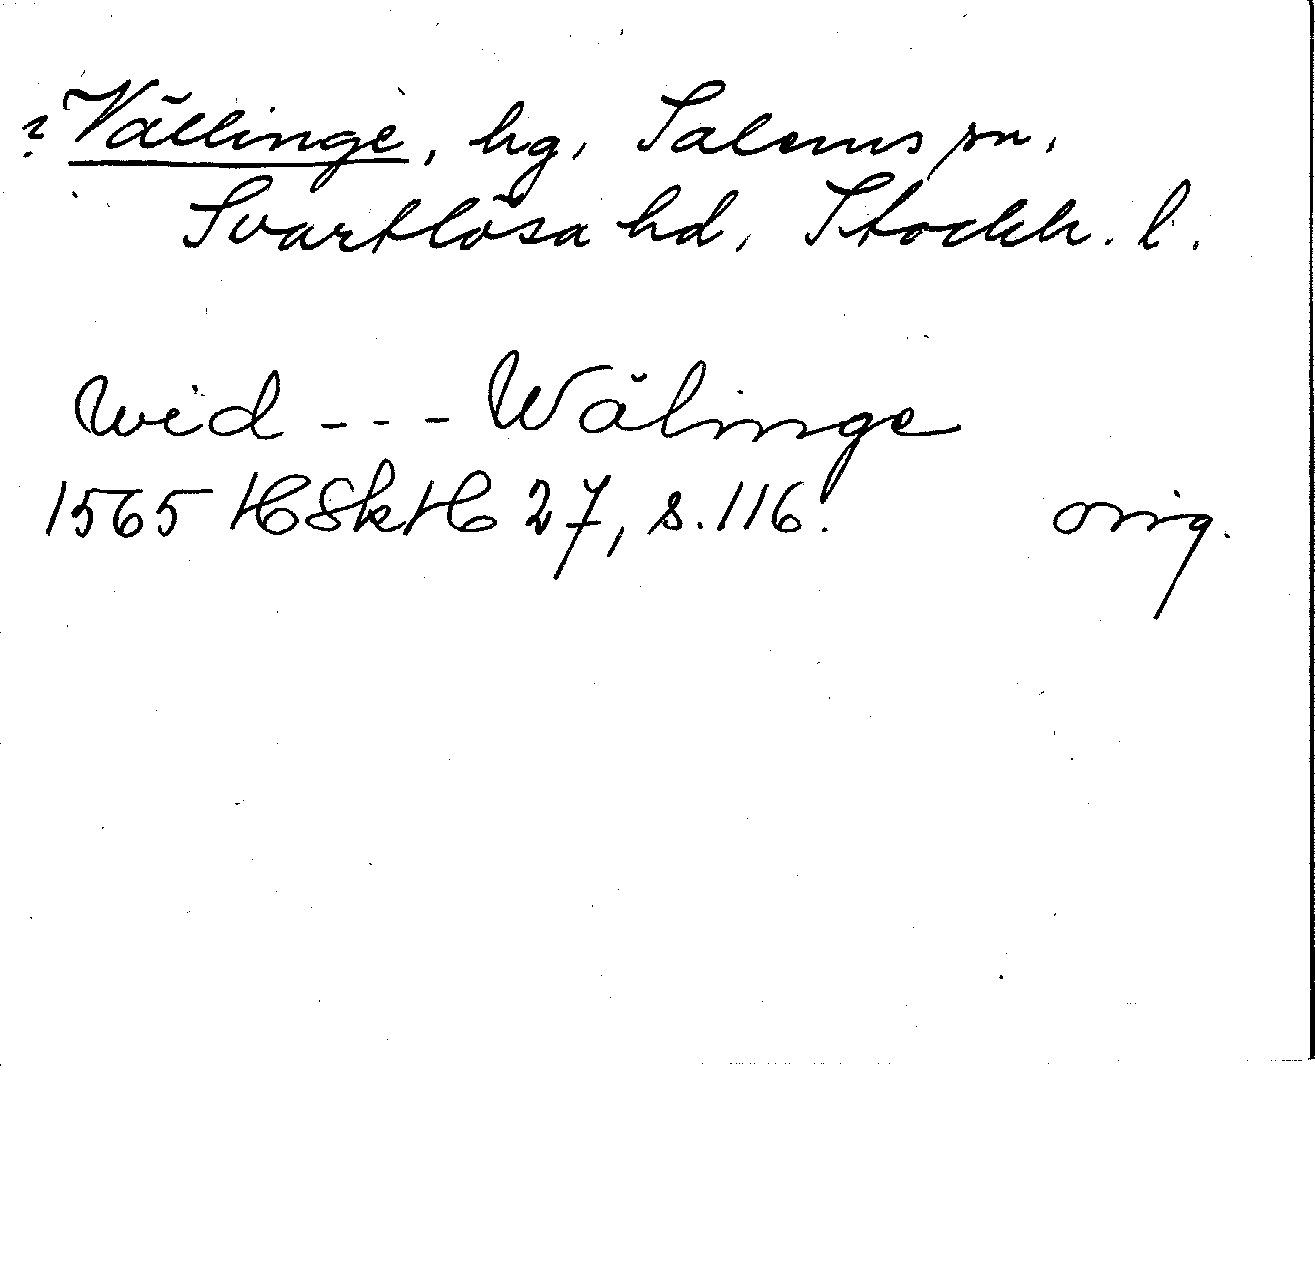 ? Vällinge, hg, Salems sn,
Svartlösa hd, Stockh. l.
wid --- Wälinge
1565 HSkH 27, s. 116. orig.